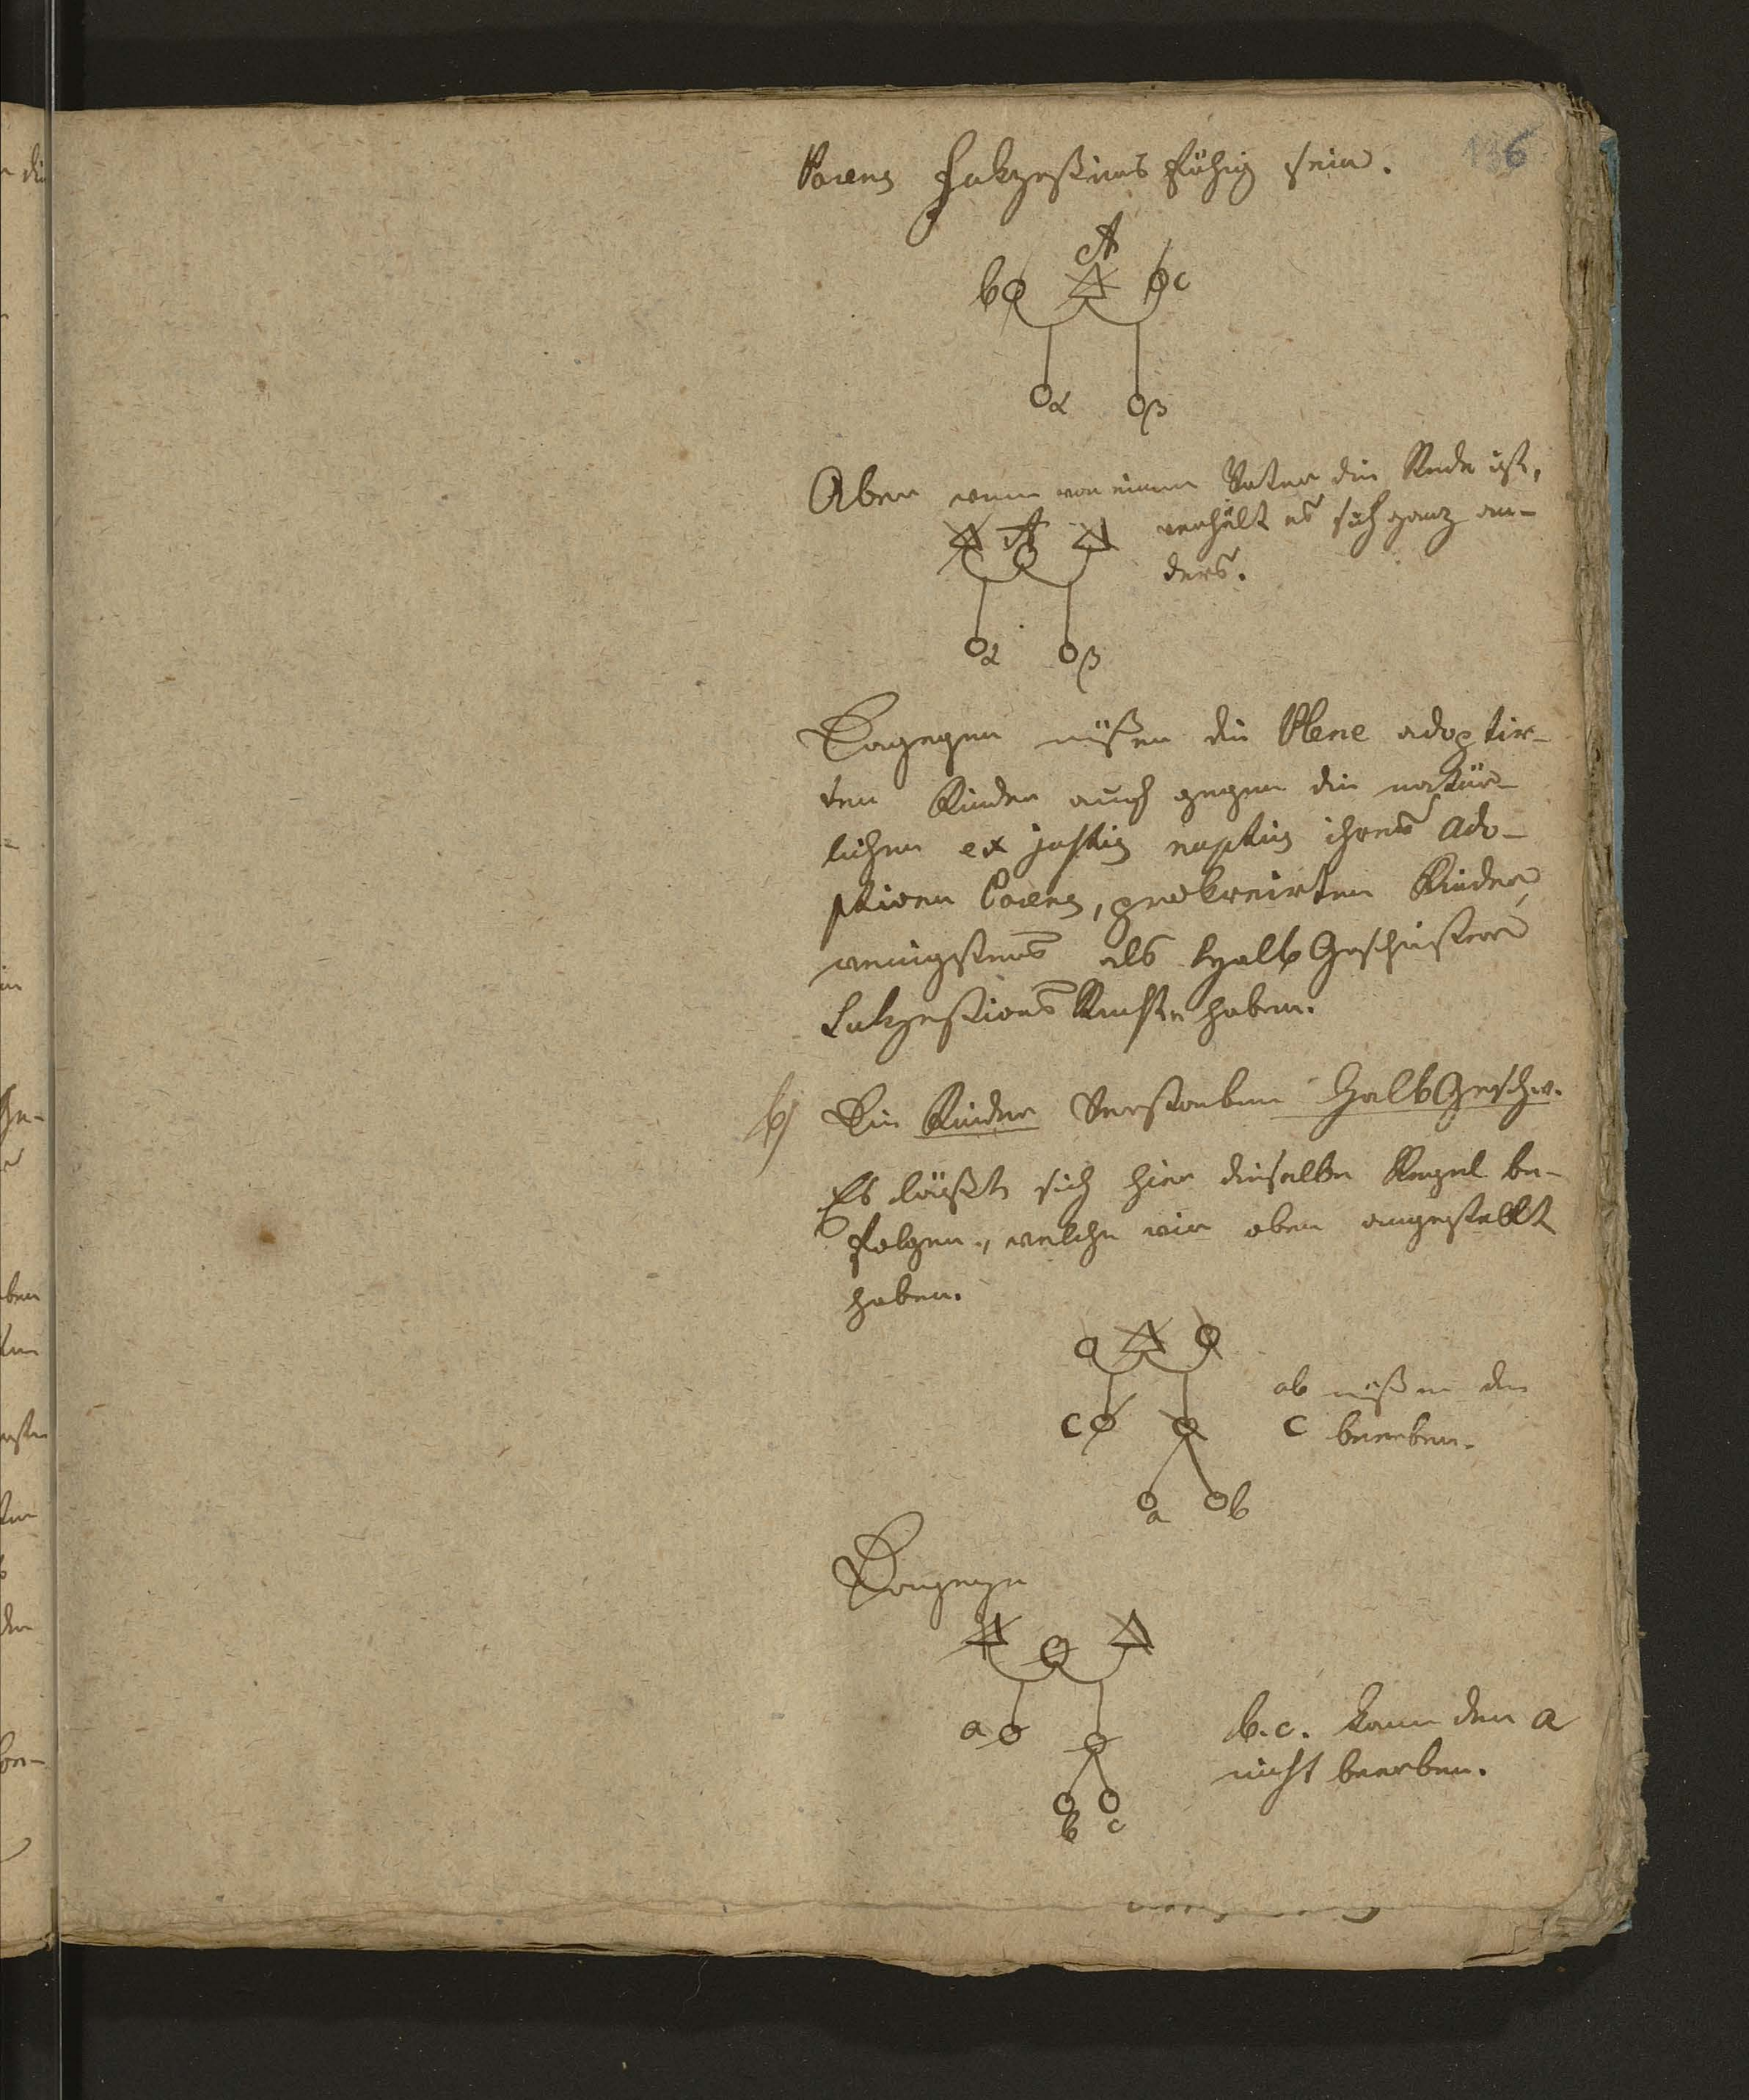 136
Parens Sukzeßions fähig sein.
A
b c
α β
Aber wenn von einem Vater die Rede ist,
A verhält es sich ganz an-
ders.
α β
Dagegen müßen die Plene adoptir-
ten Kinder auch gegen die natür-
lichen ex justis nuptiis ihres Ado-
ptiven Parens, prokreirten Kinder
wenigstens als HalbGeschwister
Sukzeßions Rechte haben.
b) Die Kinder Verstorbener HalbGeschw.
Es läußt sich hier dieselbe Regel be-
folgen, welche wir oben angestellt
haben.
ab müßen den
c C beerben.
a b
Dagegen
a b.c. kann den a
nicht beerben.
b c